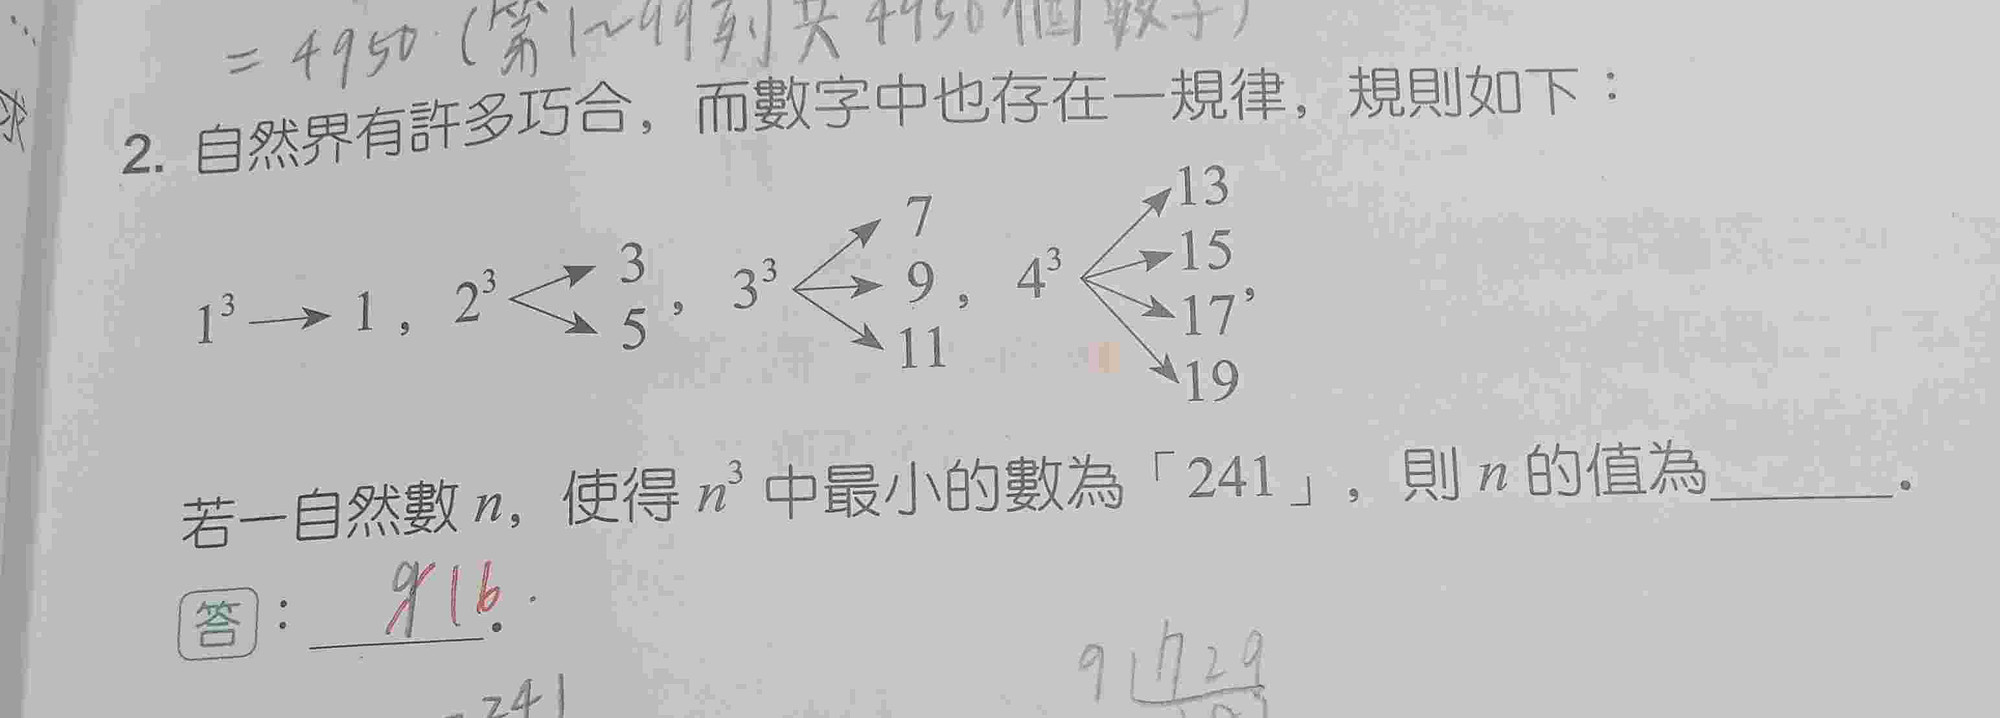 = 4950. (第1~99列共4950個數字)
2. 自然界有許多巧合，而數字中也存在一規律，規則如下：
1³ → 1， 2³ 3 5， 3³ 7 9 11， 4³ 13 15 17 19，
若一自然數 n，使得 n³ 中最小的數為「241」，則 n 的值為______．
答： 9 16．
241
9 729